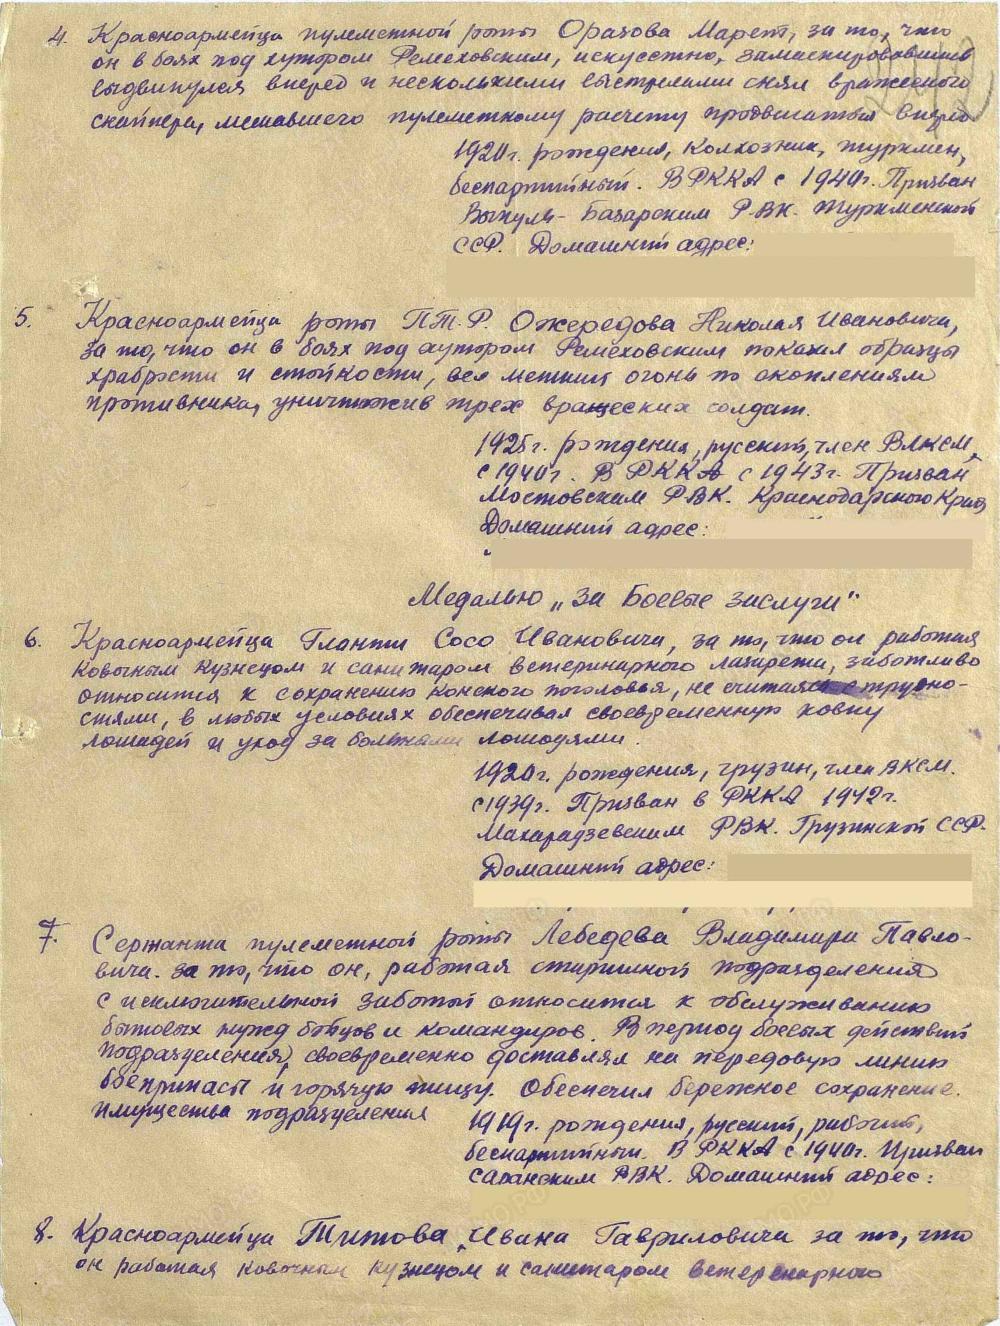 4. Красноармейца пулеметной роты Оразова Марет, за то, что
он в боях под хутором Ремеховским, искусстно, замаскировавшись
выдвинулся вперед и несколькими выстрелами снял вражеского
снайпера, мешавшего пулеметному расчету продвигаться вперед
1920г. рождения, колхозник, туркмен,
беспартийный. В РККА с 1940г. Призван
Базарским РВК. Туркменской
ССР. Домашний адрес:
5. Красноармейца роты П.Т.Р. Ожередова Николая Ивановича,
за то, что он в боях под хутором Ремеховским показал образцы
храбрости и стойкости, вел меткий огонь по скоплениям
противника, уничтожив трех вражеских солдат.
1925г. рождения, русский, член ВЛКСМ,
с 1940г. В РККА с 1943г. Призван
Мостовским РВК. Краснодарского Края
Домашний адрес:
Медалью „За Боевые заслуги"
6. Красноармейца Гланти Сосо Ивановича, за то, что он работая
ковочным кузнецом и санитаром ветеринарного лазарета, заботливо
относится к сохранению конского поголовья, не считаясь с трудно-
стями, в любых условиях обеспечивал своевременную ковку
лошадей и уход за больными лошадями.
1920г. рождения, грузин, член ВКСМ.
с 1939г. Призван в РККА 1942г.
Махарадзевским РВК. Грузинской ССР.
Домашний адрес:
7. Сержанта пулеметной роты Лебедева Владимира Павло-
вича. за то, что он, работая старшиной подразделения
с исключительной заботой относится к обслуживанию
бытовых нужд бойцов и командиров. В период боевых действий
подразделения, своевременно доставлял на передовую линию
боеприпасы и горячую пищу. Обеспечил бережное сохранение.
имущества подразделения
1919г. рождения, русский, рабочий,
беспартийный. В РККА с 1940г. Призван
Саранским РВК. Домашний адрес:
8. Красноармейца Титова Ивана Гавриловича за то, что
он работая ковочным кузнецом и санитаром ветеренарного